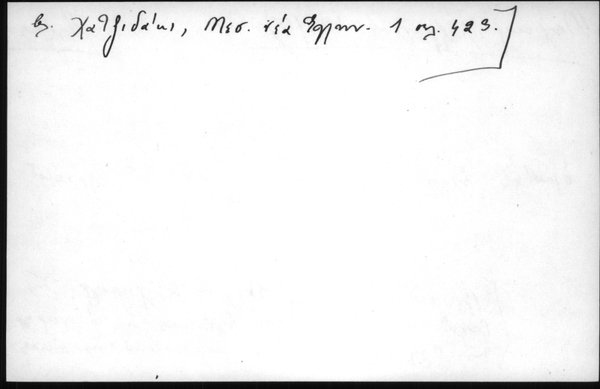 βλ. Χατζιδάκι, Μεσ. νέα Ελλην. 1 σελ. 423.]